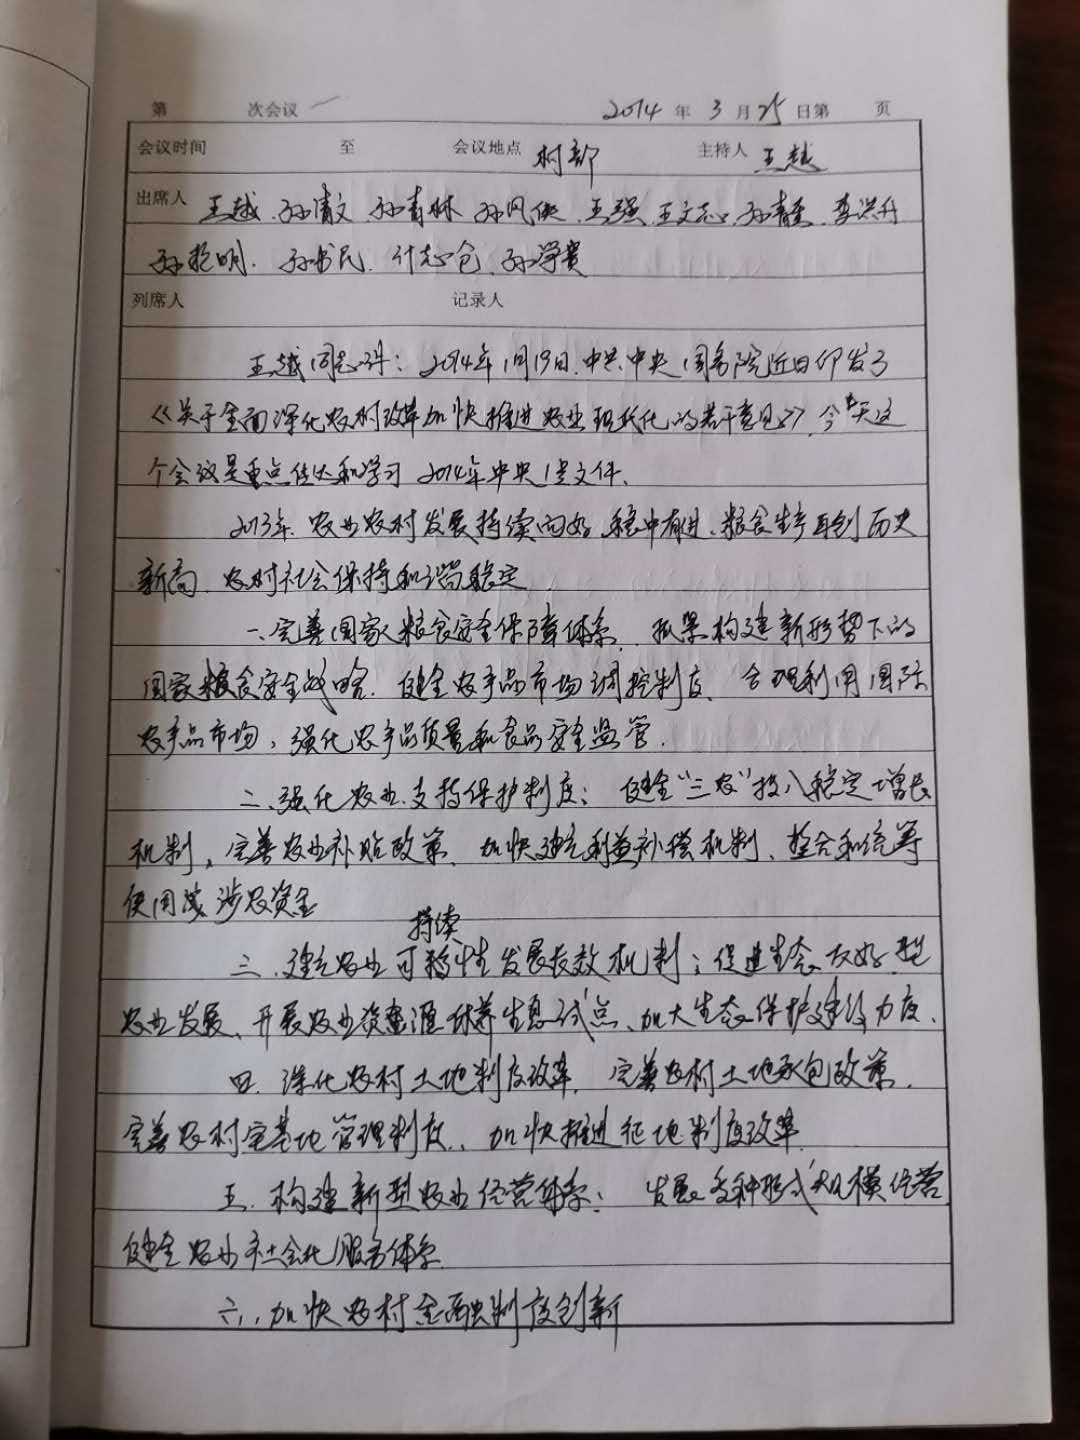 第 次会议 2014 年 3 月 25 日第 页
会议时间 至 会议地点 村部 主持人 王越
出席人 王越、孙清文 孙青林 孙凤侠、王强、王文志、孙青 李洪升
孙艳明、孙书民、付志仓、孙学贵
列席人 记录人
王越同志讲：2014年1月19日、中共中央 国务院近日印发了
《关于全面深化农村改革加快推进农业现代化的若干意见》今天这
个会议是重点传达和学习 2014年中央1号文件、
2013年、农业农村发展持续向好 稳中有进、粮食生产再创历史
新高、农村社会保持和谐稳定、
一、完善国家粮食安全保障体系、抓紧构建新形势下的
国家粮食安全战略、健全农产品市场调控制度 合理利用国际
农产品市场，强化农产品质量和食品安全监管、
二、强化农业支持保护制度；健全“三农”投入稳定增长
机制，完善农业补贴政策、加快建立利益补偿机制、整合和统筹
使用涉农资金
持续
三、建立农业可 性发展长效机制；促进生态友好型
农业发展、开展农业资源休养生息试点、加大生态保护建设力度、
四、深化农村土地制度改革、完善农村土地承包政策、
完善农村宅基地管理制度、加快推进征地制度改革
五、构建新型农业经营体系； 发展多种形式规模经营
健全农业社会化服务体系
六、加快农村金融制度创新